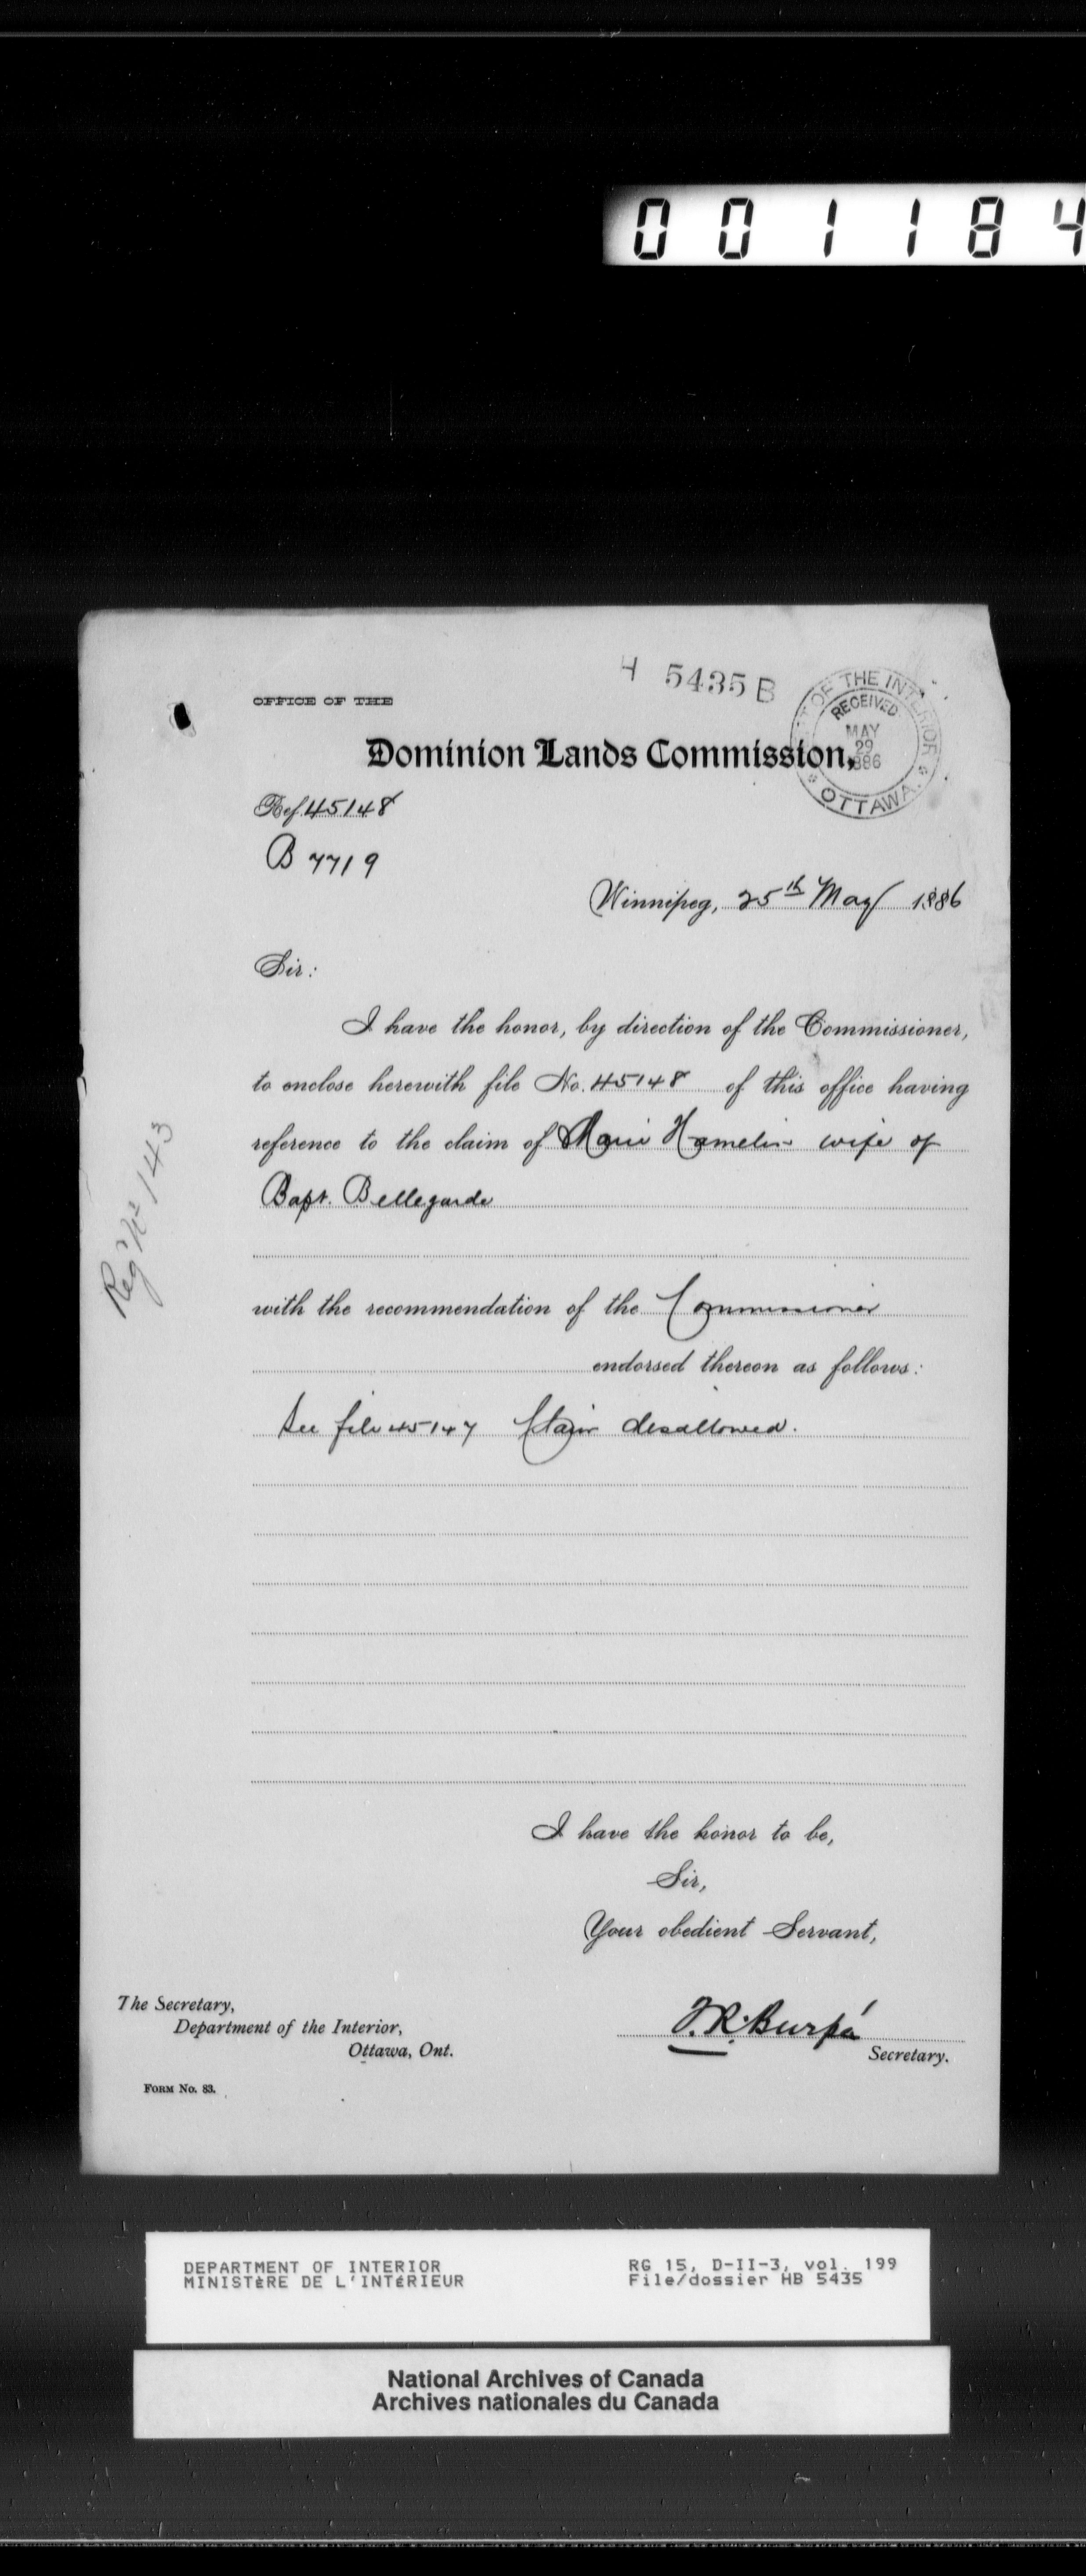 0 0 1 1 8 4
H 5435 B
OFFICE OF THE
Dominion Lands Commission,
OF THE INTERIOR
RECEIVED
MAY
29
1886
OTTAWA.
Ref. 45148
B 7719
Winnipeg, 25th May 1886
Sir:
I have the honor, by direction of the Commissioner,
to enclose herewith file No. 45148 of this office having
reference to the claim of Marie Hamelin wife of
Bapt. Bellegarde
Reg No 143
with the recommendation of the Commissioner
endorsed thereon as follows:
See file 45147 Claim disallowed.
I have the honor to be,
Sir,
Your obedient Servant,
The Secretary,
Department of the Interior,
Ottawa, Ont.
Secretary.
FORM No. 83.
DEPARTMENT OF INTERIOR
MINISTÈRE DE L'INTÉRIEUR
RG 15, D-II-3, vol. 199
File/dossier HB 5435
National Archives of Canada
Archives nationales du Canada